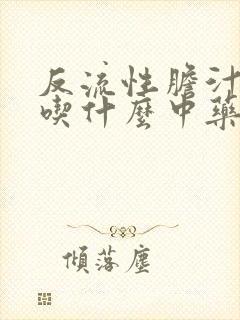 反流性膽汁
喫什麼中藥
傾落塵